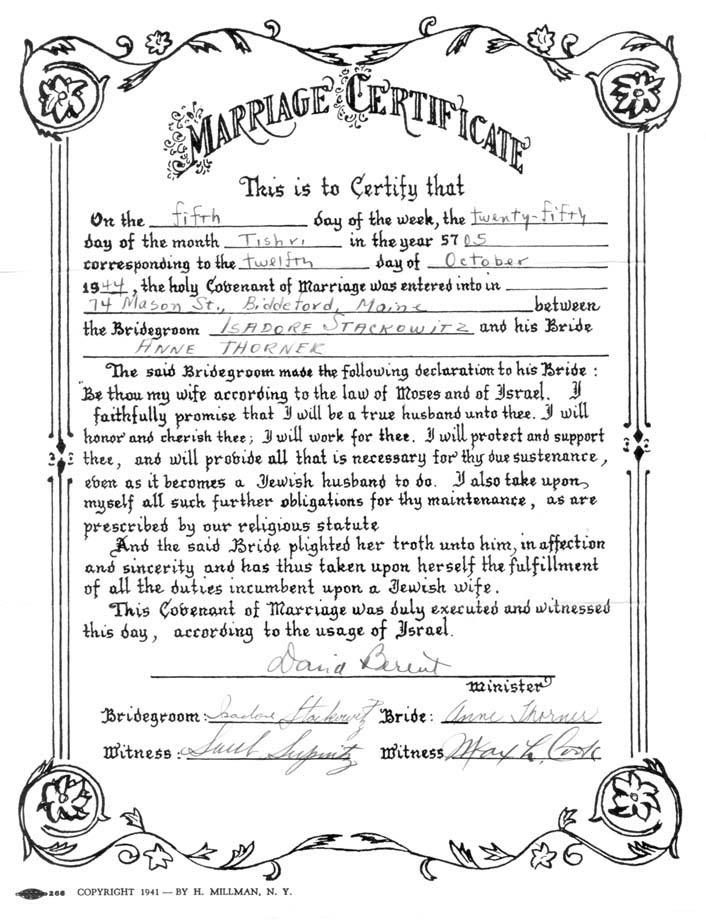 MARRIAGE CERTIFICATE
This is to Certify that
On the fifth day of the week, the twenty-fifth
day of the month Tishri in the year 5705
corresponding to the twelfth day of October
1944, the holy Covenant of Marriage was entered into in
74 Mason St., Biddeford, Maine between
the Bridegroom ISADORE STACKOWITZ and his Bride
ANNE THORNER
The said Bridegroom made the following declaration to his Bride :
"Be thou my wife according to the law of Moses and of Israel. I
faithfully promise that I will be a true husband unto thee. I will
honor and cherish thee; I will work for thee. I will protect and support
thee, and will provide all that is necessary for thy due sustenance,
even as it becomes a Jewish husband to do. I also take upon
myself all such further obligations for thy maintenance, as are
prescribed by our religious statute
And the said Bride plighted her troth unto him, in affection
and sincerity and has thus taken upon herself the fulfillment
of all the duties incumbent upon a Jewish wife.
This Covenant of Marriage was duly executed and witnessed
this day, according to the usage of Israel.
David Berent
Minister
Bridegroom: Isadore Stackowitz Bride: Anne Thorner
Witness: Witness Max L. Cook
266 COPYRIGHT 1941 — BY H. MILLMAN, N. Y.